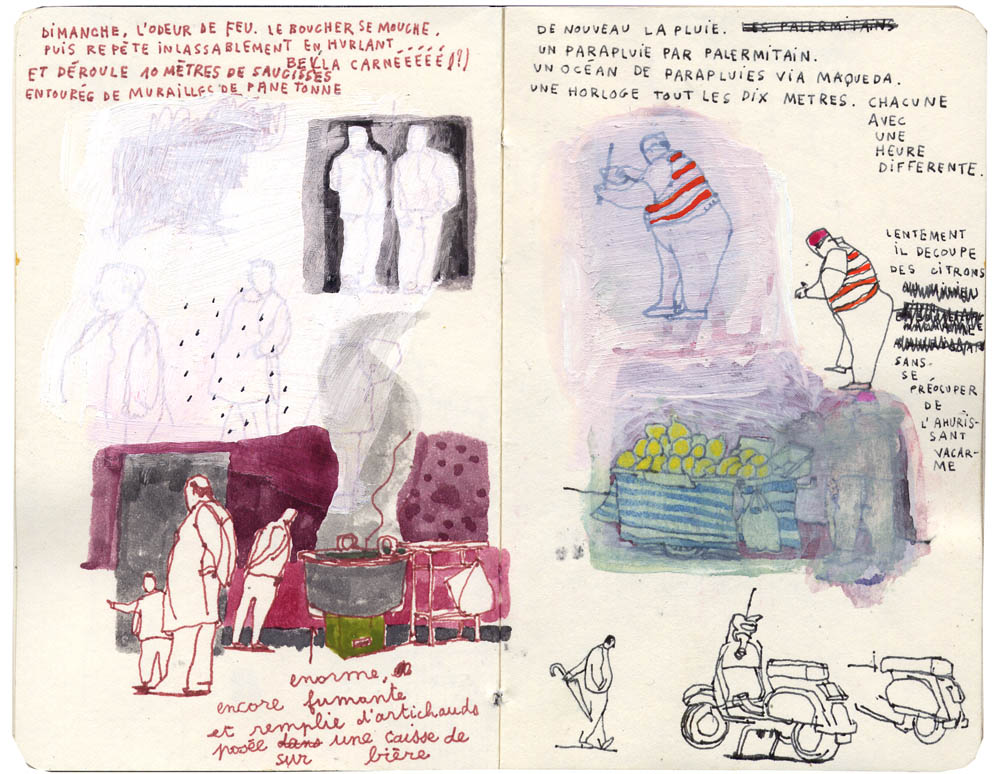 DIMANCHE, L'ODEUR DE FEU. LE BOUCHER SE MOUCHE,
PUIS REPÈTE INLASSABLEMENT EN HURLANT
BELLA CARNÉÉÉÉÉ (!?)
ET DÉROULE 10 MÈTRES DE SAUCISSES
ENTOURÉE DE MURAILLES DE PANETONNE
enorme,
encore fumante
et remplie d'artichauds
posée dans une caisse de
sur bière
DE NOUVEAU LA PLUIE. LES PALERMITAINS
UN PARAPLUIE PAR PALERMITAIN.
UN OCÉAN DE PARAPLUIES VIA MAQUEDA.
UNE HORLOGE TOUT LES DIX METRES. CHACUNE
AVEC
UNE
HEURE
DIFFERENTE.
LENTEMENT
IL DECOUPE
DES CITRONS
SANS
SE
PRÉOCUPER
DE
L'AHURIS-
SANT
VACAR-
ME